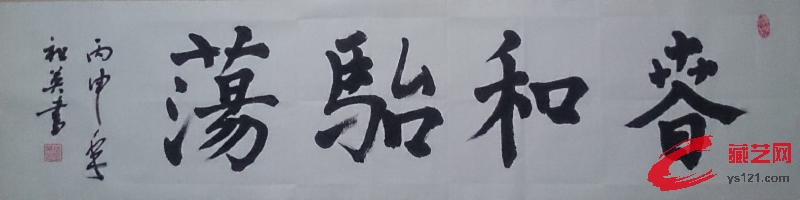 春和駘蕩
丙申年
英書
藏艺网
ys121.com